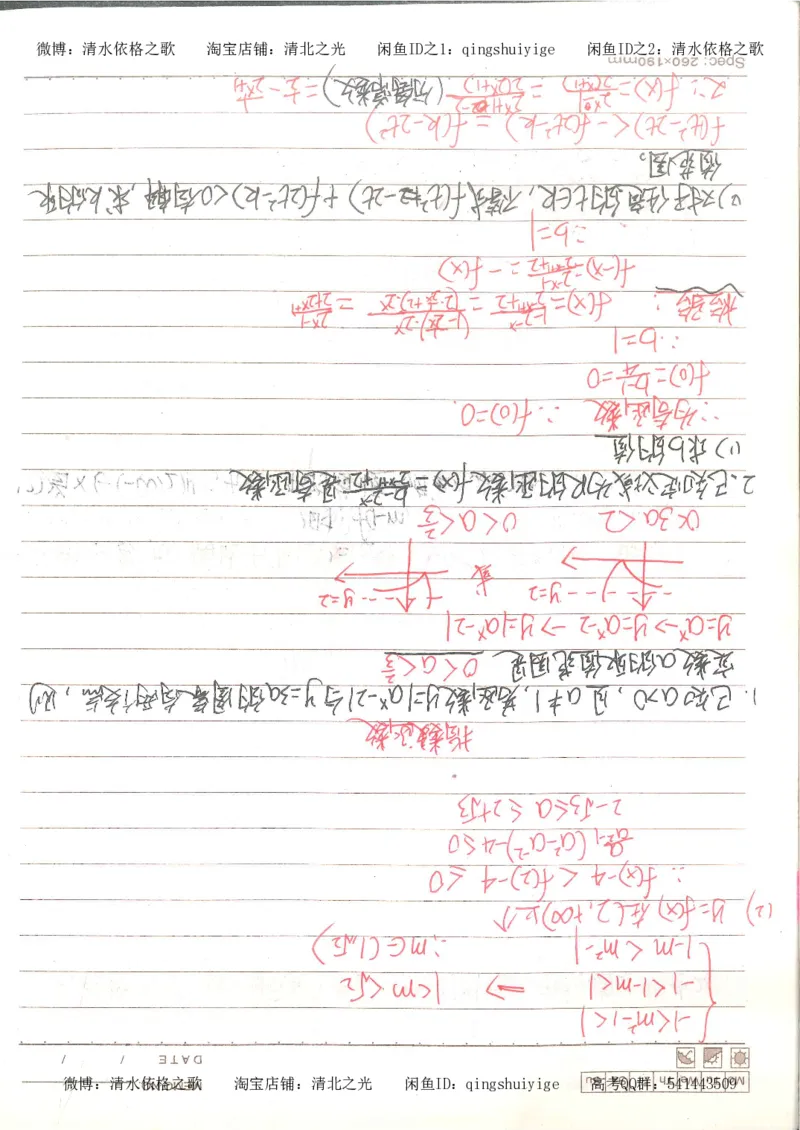 微博：清水依格之歌 淘宝店铺：清北之光 闲鱼ID之1：qingshuiyige 闲鱼ID之2：清水依格之歌
DATE / /
-1<m²-1<1
-1<1-m<1 ⇒ 1<m<√2
1-m<m²-1 ∴m∈(1,√2)
(2) y=f(x)在(2,+∞)上↑
∴f(x)-4<f(2)-4≤0
(a²-a⁻²)-4≤0
2-√3≤a≤2+√3
指数函数
1.已知a>0,且a≠1,若函数y=|aˣ-2|与y=3a的图象有两个交点,则
实数a的取值范围是 0<a<2/3
y=aˣ→y=aˣ-2→y=|aˣ-2|
y=2 或 y=2
0<3a<2 0<a<2/3
2.已知定义域为R的函数f(x)=(b-2ˣ)/(2ˣ⁺¹+2)是奇函数
(1)求b的值
∵为奇函数 ∴f(0)=0.
f(0)=(b-1)/4=0
∴b=1
检验: f(x)=(1-2⁻ˣ)/(2⁻ˣ⁺¹+2)
f(-x) = -f(x)
∴b=1
(2)对于任意的t∈R,不等式f(t²-2t)+f(2t²-k)<0有解,求k的取
值范围。
f(t²-2t)<-f(2t²-k)=f(k-2t²)
(分离常数)
Spec: 260×190mm
微博：清水依格之歌 淘宝店铺：清北之光 闲鱼ID：qingshuiyige 高考QQ群：541443509